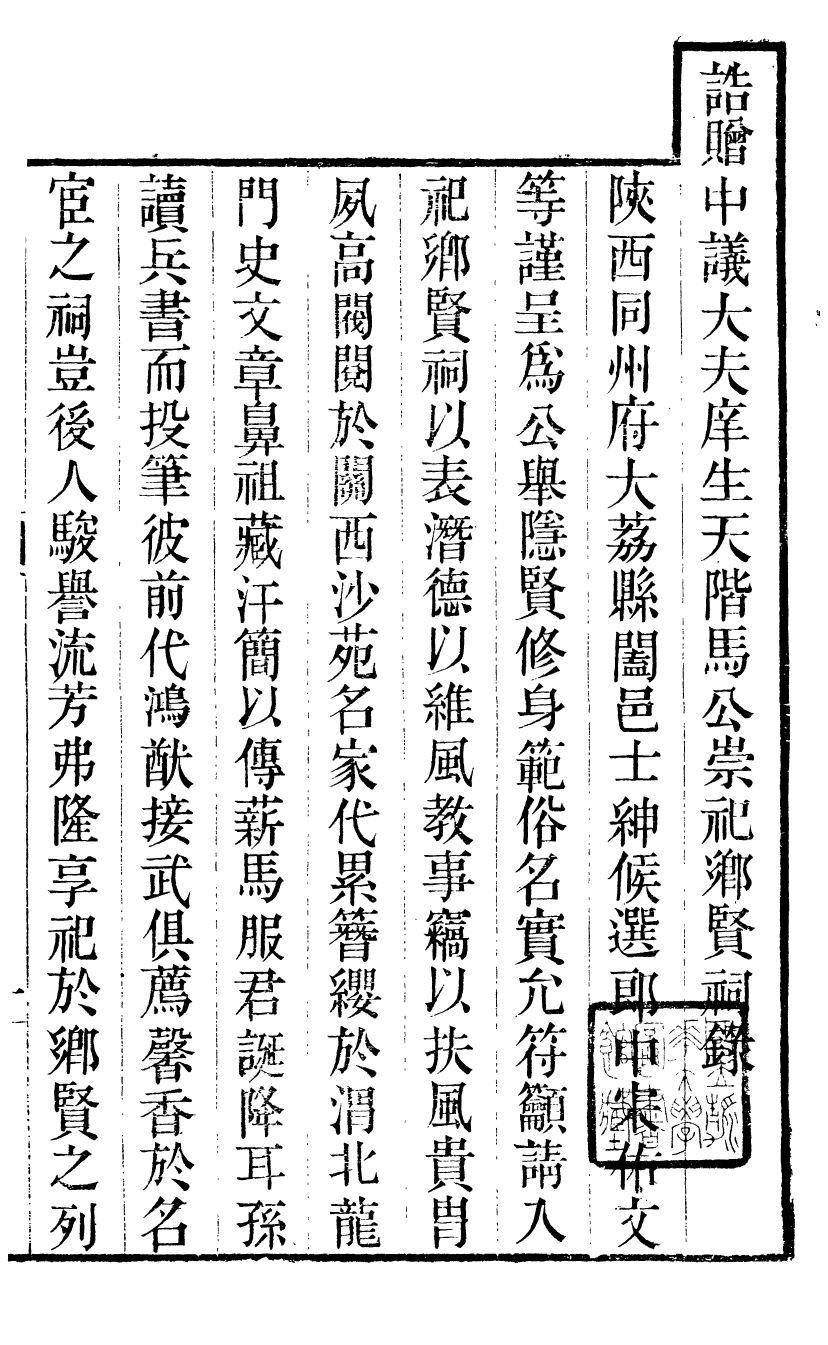 誥贈中議大夫庠生天階馬公崇祀鄉賢祠錄
陜西同州府大荔縣闔邑士紳候選郎中張佑文
等謹呈爲公舉隱賢修身範俗名實允符籲請入
祀鄉賢祠以表潛德以維風教事竊以扶風貴胄
夙高閥閱於關西沙苑名家代累簪纓於渭北龍
門史文章鼻祖藏汗簡以傳薪馬服君誕降耳孫
讀兵書而投筆彼前代鴻猷接武俱薦馨香於名
宦之祠豈後人駿譽流芳弗隆享祀於鄉賢之列